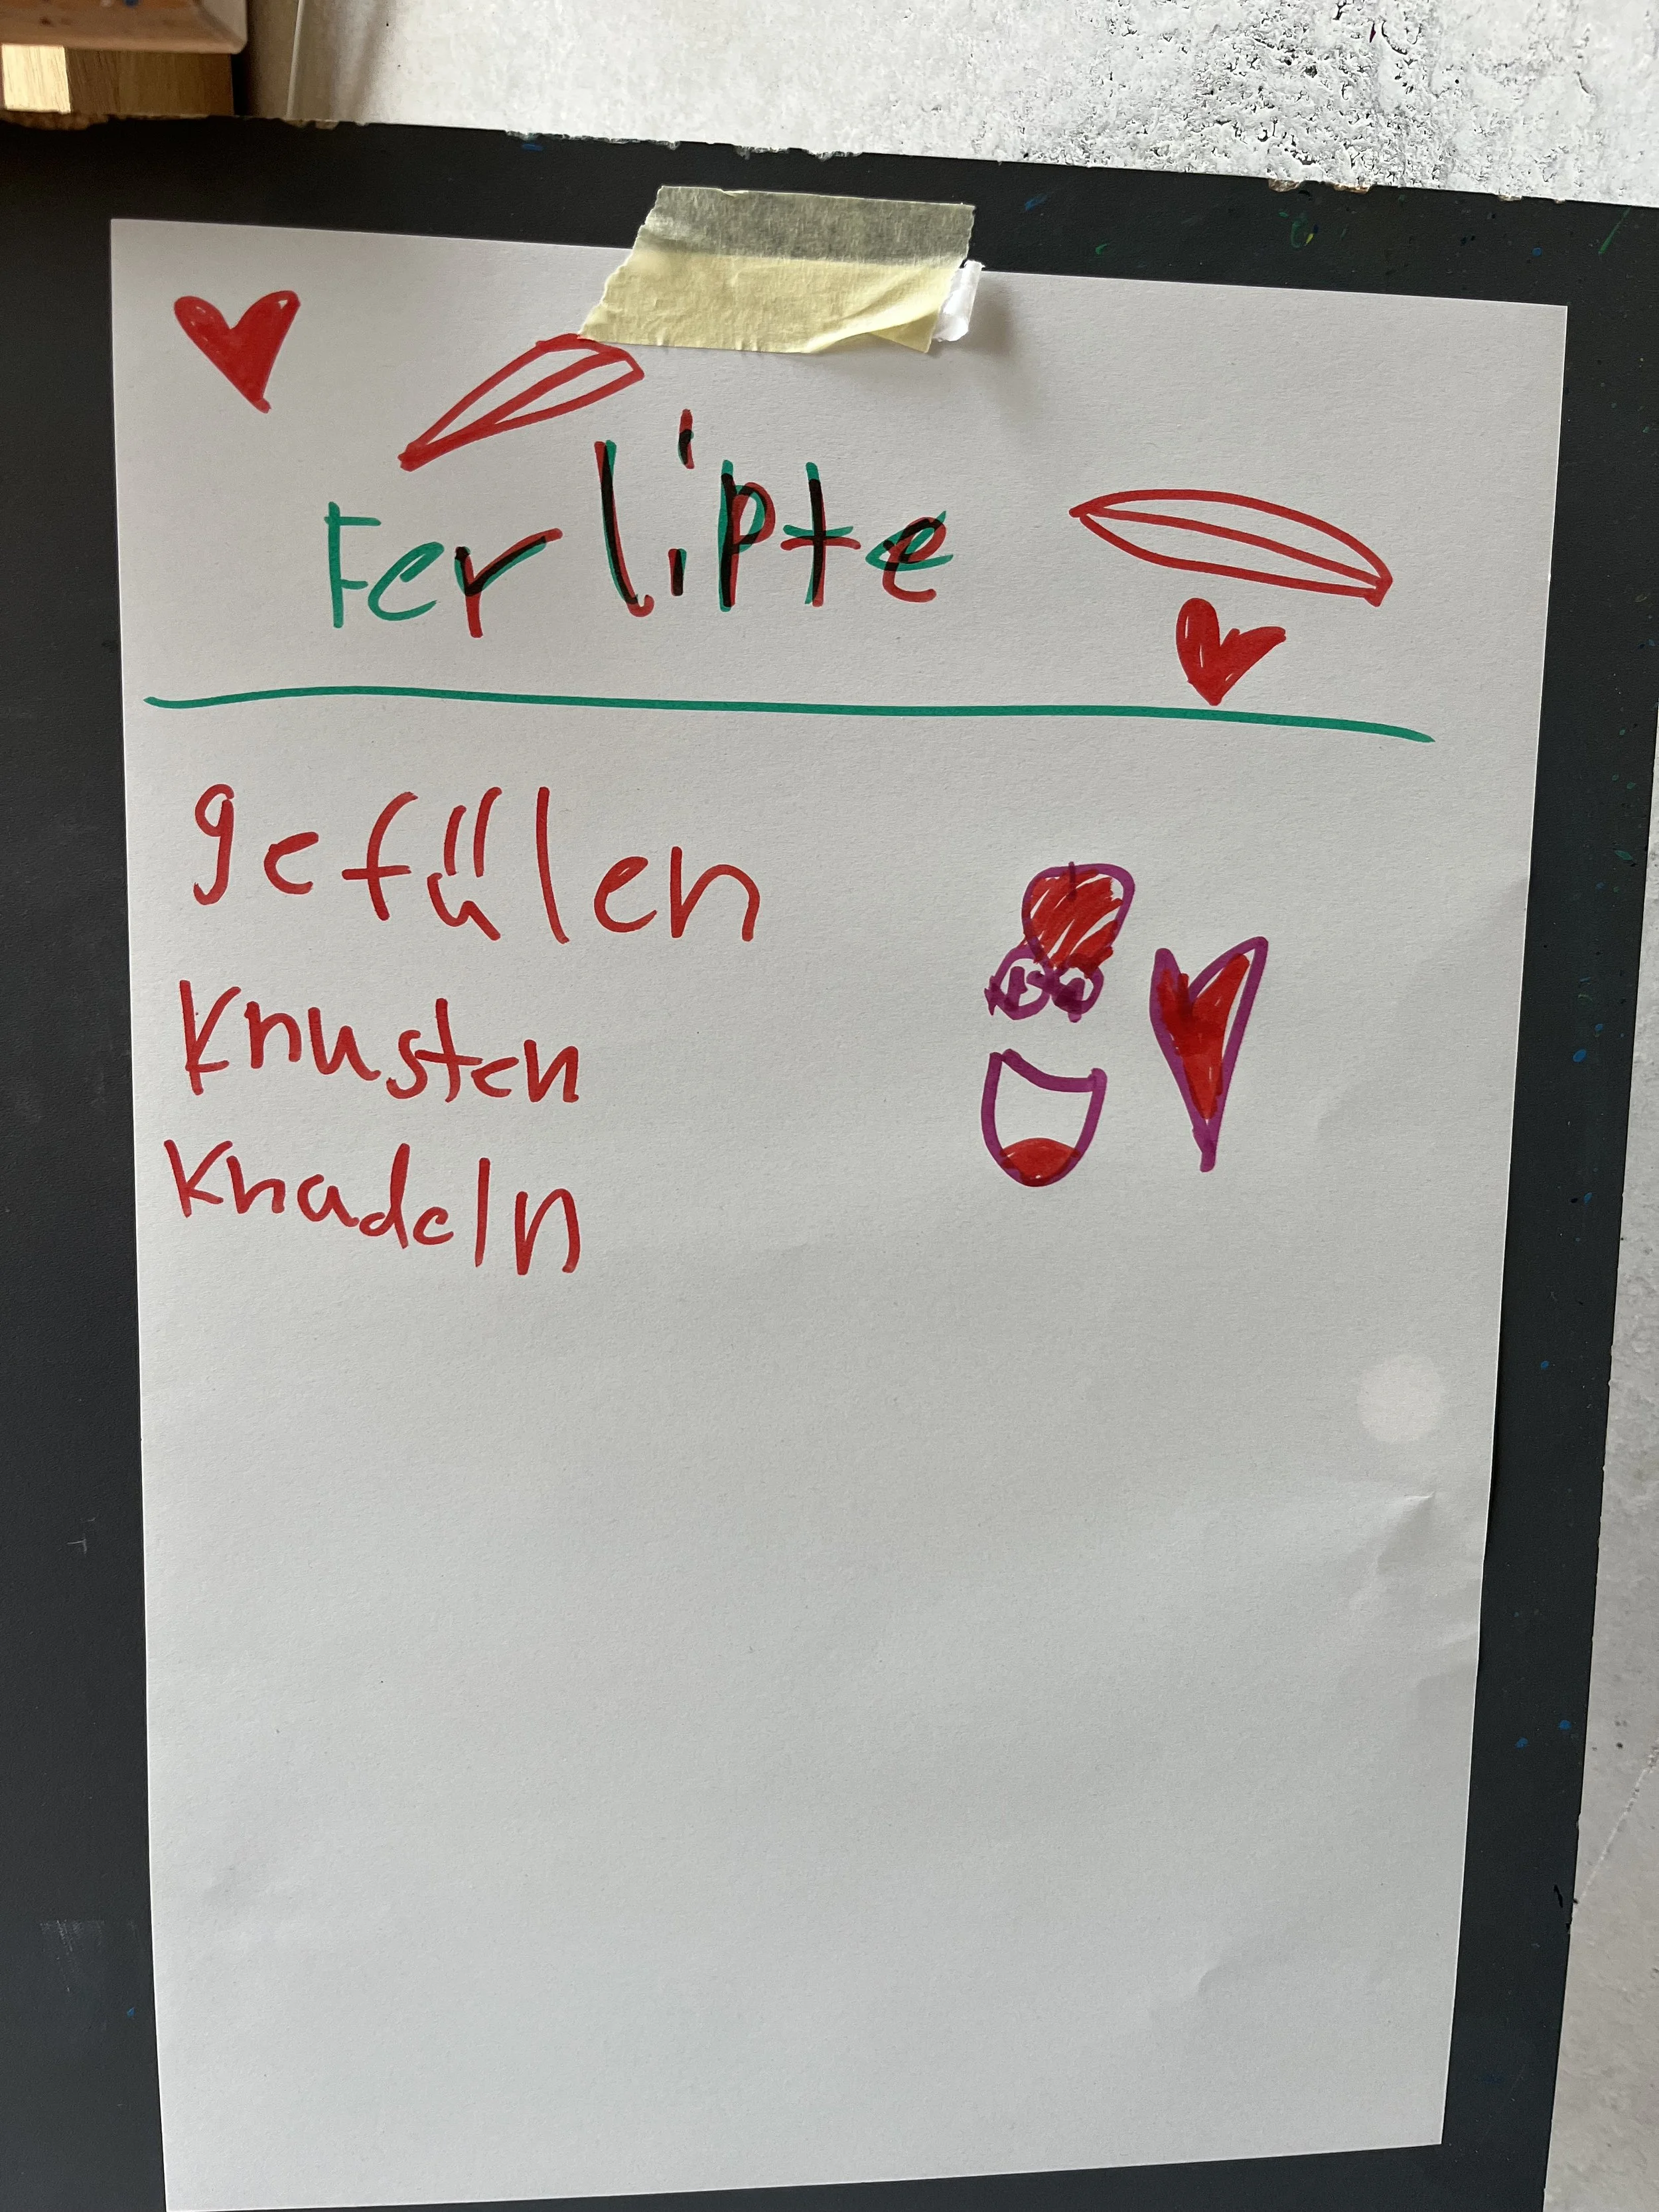 Ferlipte
gefülen
Knusten
Knadeln